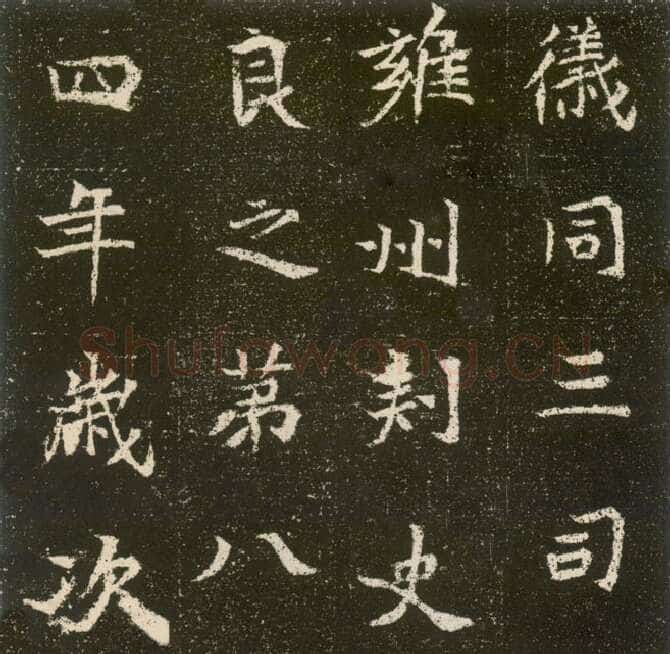 儀同三司
雍州刺史
良之第八
四年歲次
Shufawang.CN